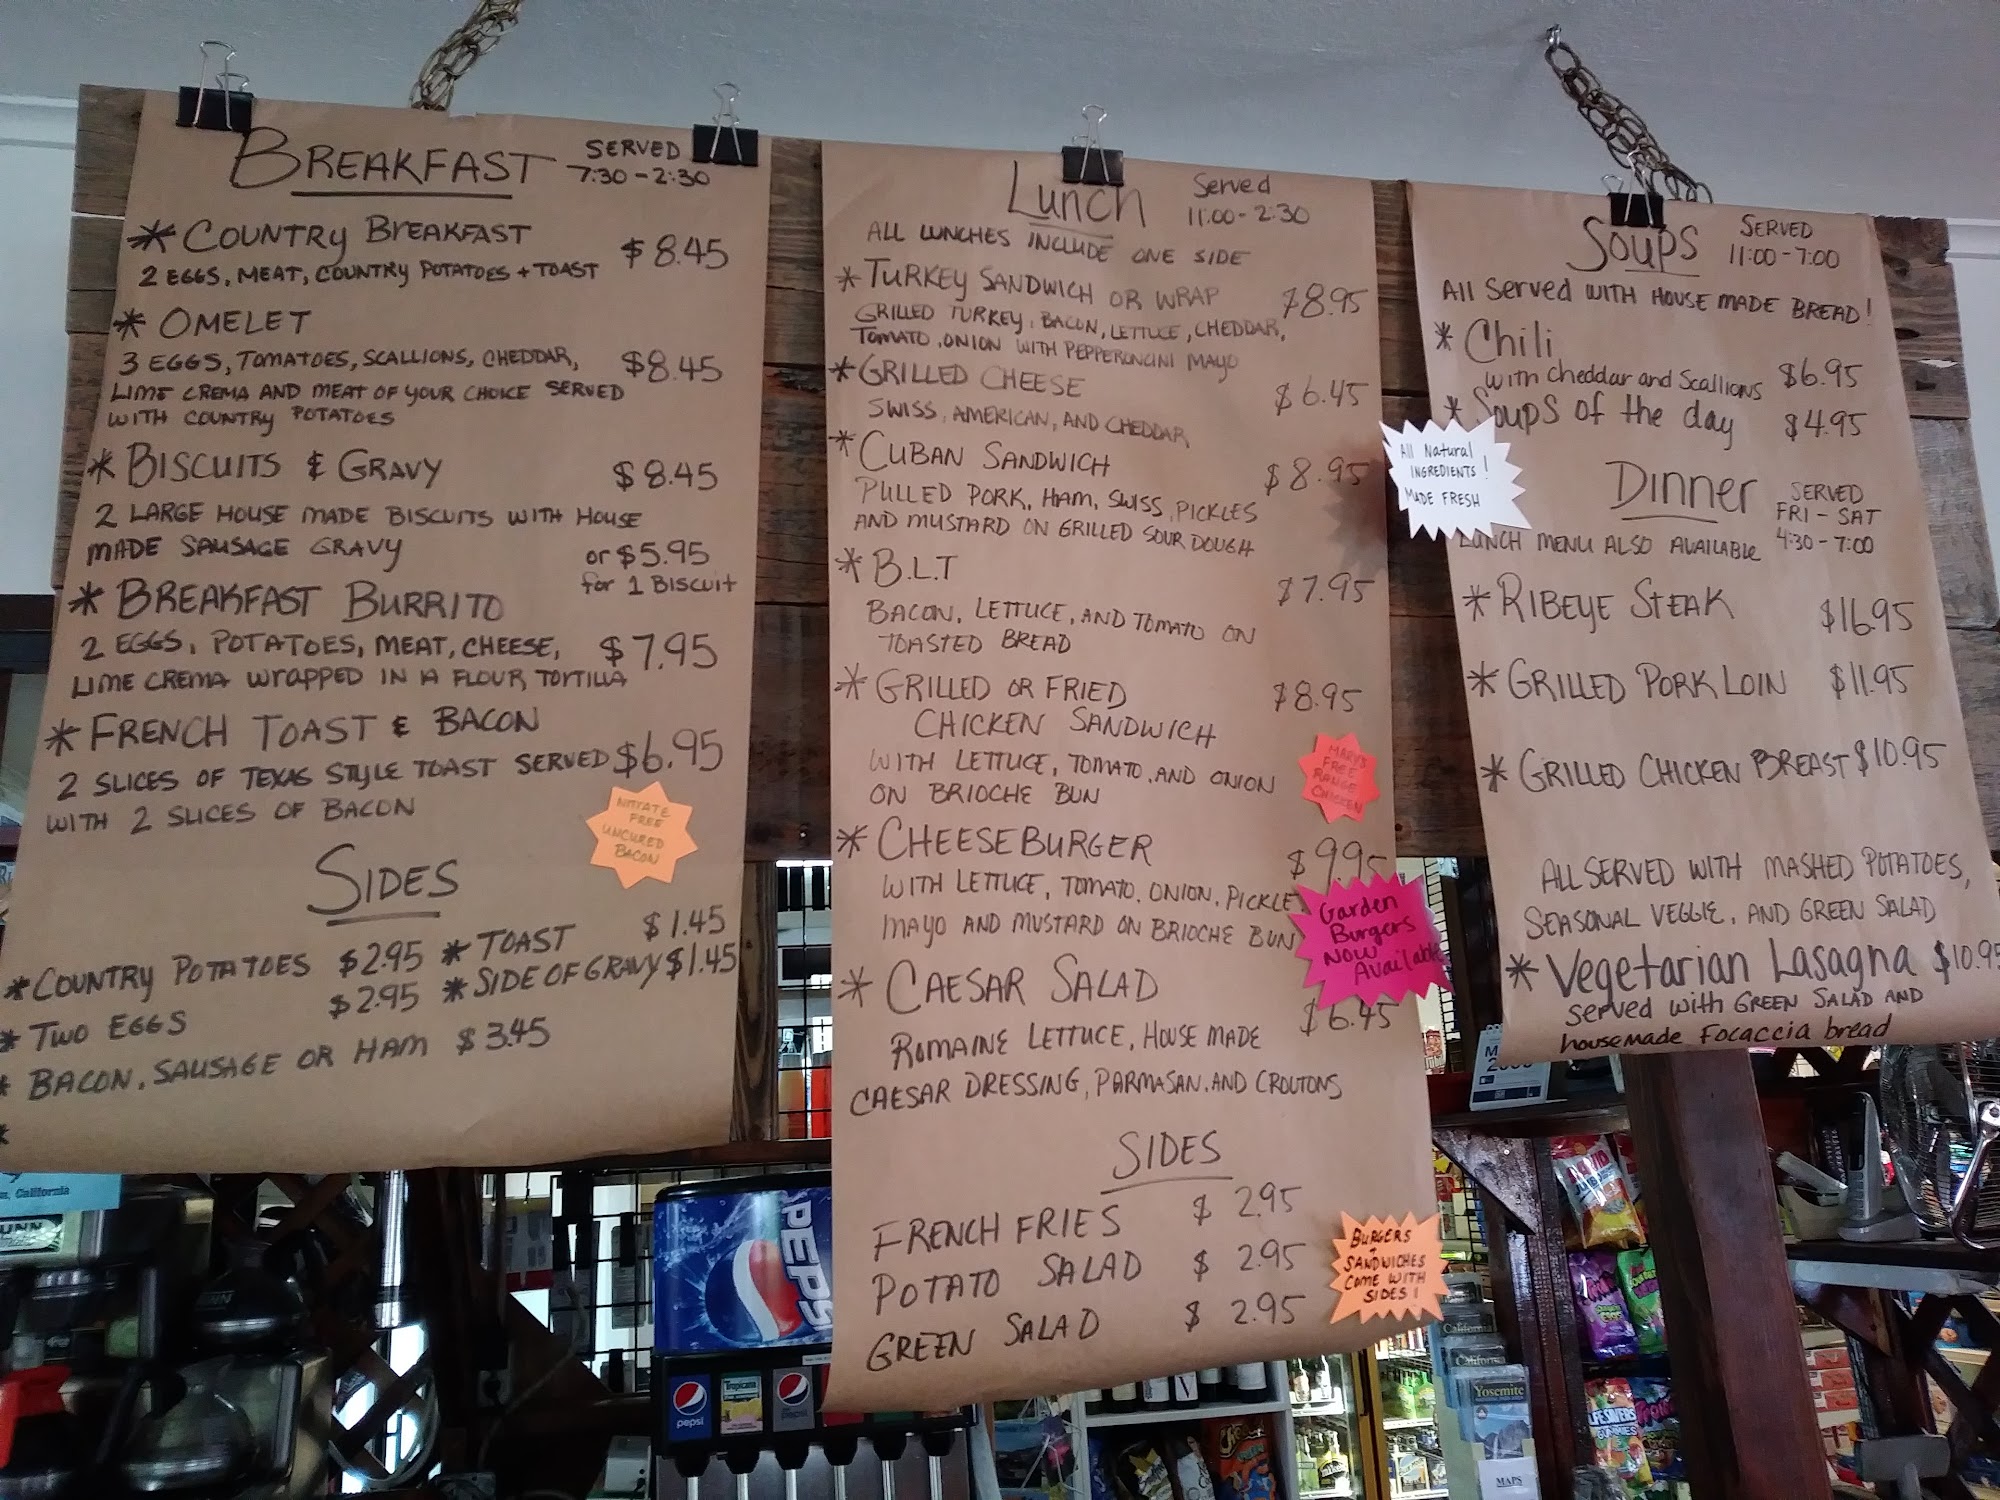 BREAKFAST
SERVED
7:30-2:30
* COUNTRY BREAKFAST $8.45
2 EGGS, MEAT, COUNTRY POTATOES + TOAST
* OMELET
3 EGGS, TOMATOES, SCALLIONS, CHEDDAR, $8.45
LIME CREMA AND MEAT OF YOUR CHOICE SERVED
WITH COUNTRY POTATOES
* BISCUITS & GRAVY $8.45
2 LARGE HOUSE MADE BISCUITS WITH HOUSE
MADE SAUSAGE GRAVY or $5.95
for 1 BISCUIT
* BREAKFAST BURRITO
2 EGGS, POTATOES, MEAT, CHEESE, $7.95
LIME CREMA Wrapped IN A FLOUR TORTILLA
* FRENCH TOAST & BACON
2 SLICES OF TEXAS STYLE TOAST SERVED $6.95
WITH 2 SLICES OF BACON
NITRATE
FREE
UNCURED
BACON
SIDES
* COUNTRY POTATOES $2.95
* TWO EGGS $2.95
* BACON, SAUSAGE OR HAM $3.45
*
* TOAST $1.45
* SIDE OF GRAVY $1.45
Lunch
Served
11:00-2:30
ALL LUNCHES INCLUDE ONE SIDE
* TURKEY SANDWICH OR WRAP $8.95
GRILLED TURKEY, BACON, LETTUCE, CHEDDAR,
TOMATO, ONION WITH PEPPERONCINI MAYO
* GRILLED CHEESE $6.45
SWISS, AMERICAN, AND CHEDDAR
* CUBAN SANDWICH $8.95
PULLED PORK, HAM, SWISS, PICKLES
AND MUSTARD ON GRILLED SOUR DOUGH
* B.L.T $7.95
BACON, LETTUCE, AND TOMATO ON
TOASTED BREAD
* GRILLED OR FRIED $8.95
CHICKEN SANDWICH
WITH LETTUCE, TOMATO, AND ONION
ON BRIOCHE BUN
MARY'S
FREE
RANGE
CHICKEN
* CHEESEBURGER $9.95
WITH LETTUCE, TOMATO, ONION, PICKLE,
MAYO AND MUSTARD ON BRIOCHE BUN
Garden
Burgers
NOW
Available
* CAESAR SALAD $6.45
ROMAINE LETTUCE, HOUSE MADE
CAESAR DRESSING, PARMASAN, AND CROUTONS
SIDES
FRENCH FRIES $ 2.95
POTATO SALAD $ 2.95
GREEN SALAD $ 2.95
BURGERS
+
SANDWICHES
COME WITH
SIDES!
Soups
SERVED
11:00-7:00
All Served WITH HOUSE MADE BREAD!
* Chili
with Cheddar and Scallions $6.95
* Soups of the day $4.95
All Natural
INGREDIENTS!
MADE FRESH
Dinner
SERVED
FRI - SAT
4:30-7:00
LUNCH MENU ALSO AVAILABLE
* RIBEYE STEAK $16.95
* GRILLED PORK LOIN $11.95
* GRILLED CHICKEN BREAST $10.95
ALL SERVED WITH MASHED POTATOES,
SEASONAL VEGGIE, AND GREEN SALAD
* Vegetarian Lasagna $10.95
Served with GREEN SALAD AND
housemade Focaccia bread
California
PEPSI
pepsi
pepsi
Tropicana
California
California
Yosemite
MAPS
LIFESAVERS
GUMMIES